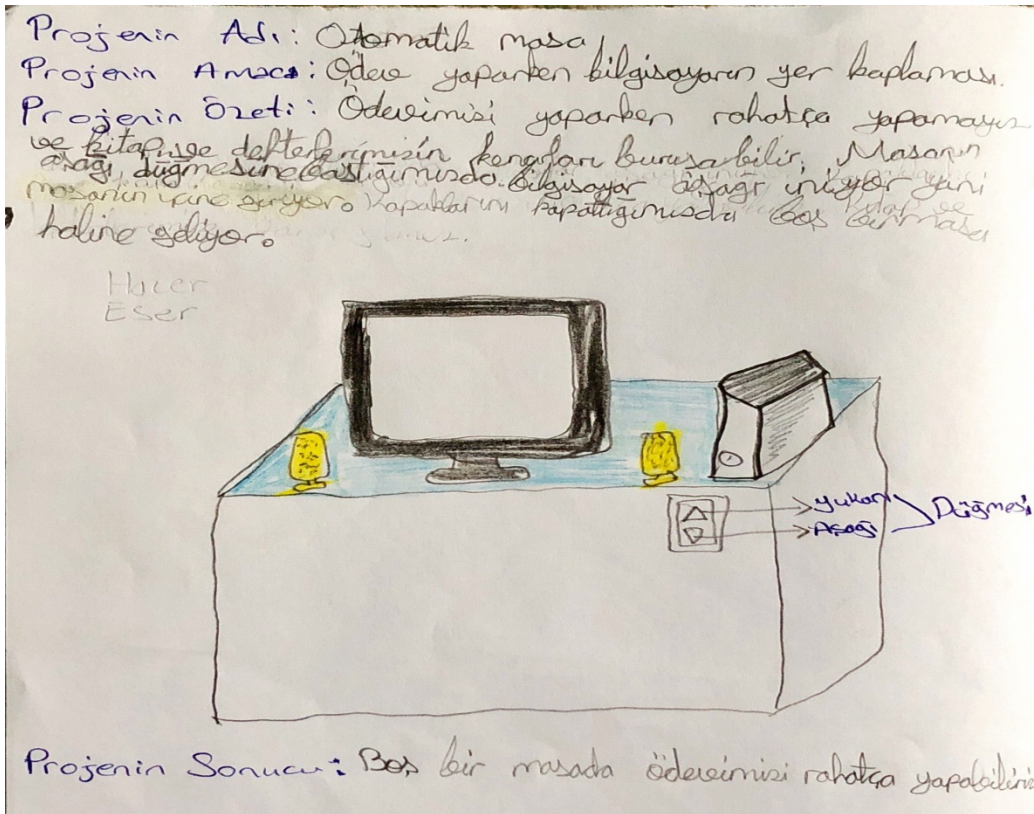 Projenin Adı: Otomatik masa
Projenin Amacı: Ödev yaparken bilgisayarın yer kaplaması.
Projenin Özeti: Ödevimizi yaparken rahatça yapamayız
ve kitap ve defterlerimizin kenarları buruşabilir. Masanın
aşağı düğmesine bastığımızda bilgisayar aşağı iniyor yani
masanın içine giriyor. Kapaklarını kapattığımızda boş bir masa
haline geliyor.
Hacer
Eser
yukarı
Aşağı
Düğmesi
Projenin Sonucu: Boş bir masada ödevimizi rahatça yapabiliriz